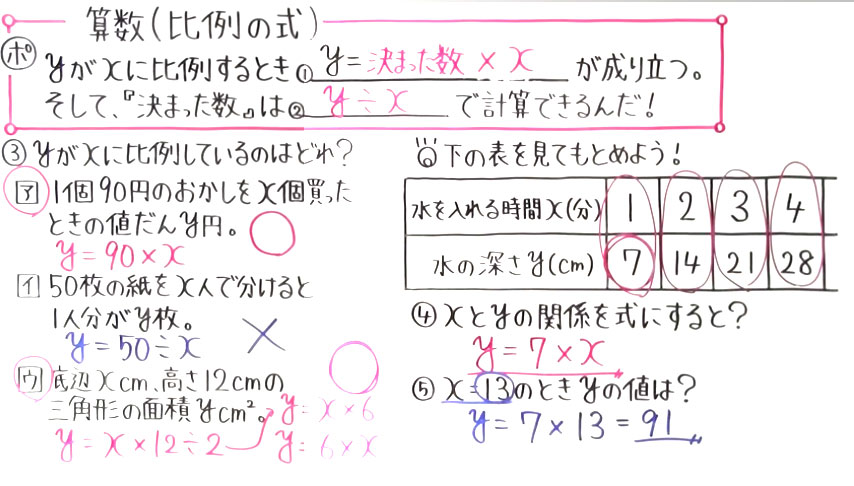 算数(比例の式)
ポ
yがxに比例するとき①y=決まった数×xが成り立つ。
そして、『決まった数』は②y÷xで計算できるんだ!
③yがxに比例しているのはどれ?
ア 1個90円のおかしをx個買った
ときの値だんy円。
y=90×x
イ 50枚の紙をx人で分けると
1人分がy枚。
y=50÷x
ウ 底辺xcm、高さ12cmの
三角形の面積ycm²。
y=x×12÷2
y=x×6
y=6×x
下の表を見てもとめよう!
水を入れる時間x(分) 1 2 3 4
水の深さy(cm) 7 14 21 28
④xとyの関係を式にすると?
y=7×x
⑤x=13のときyの値は?
y=7×13=91